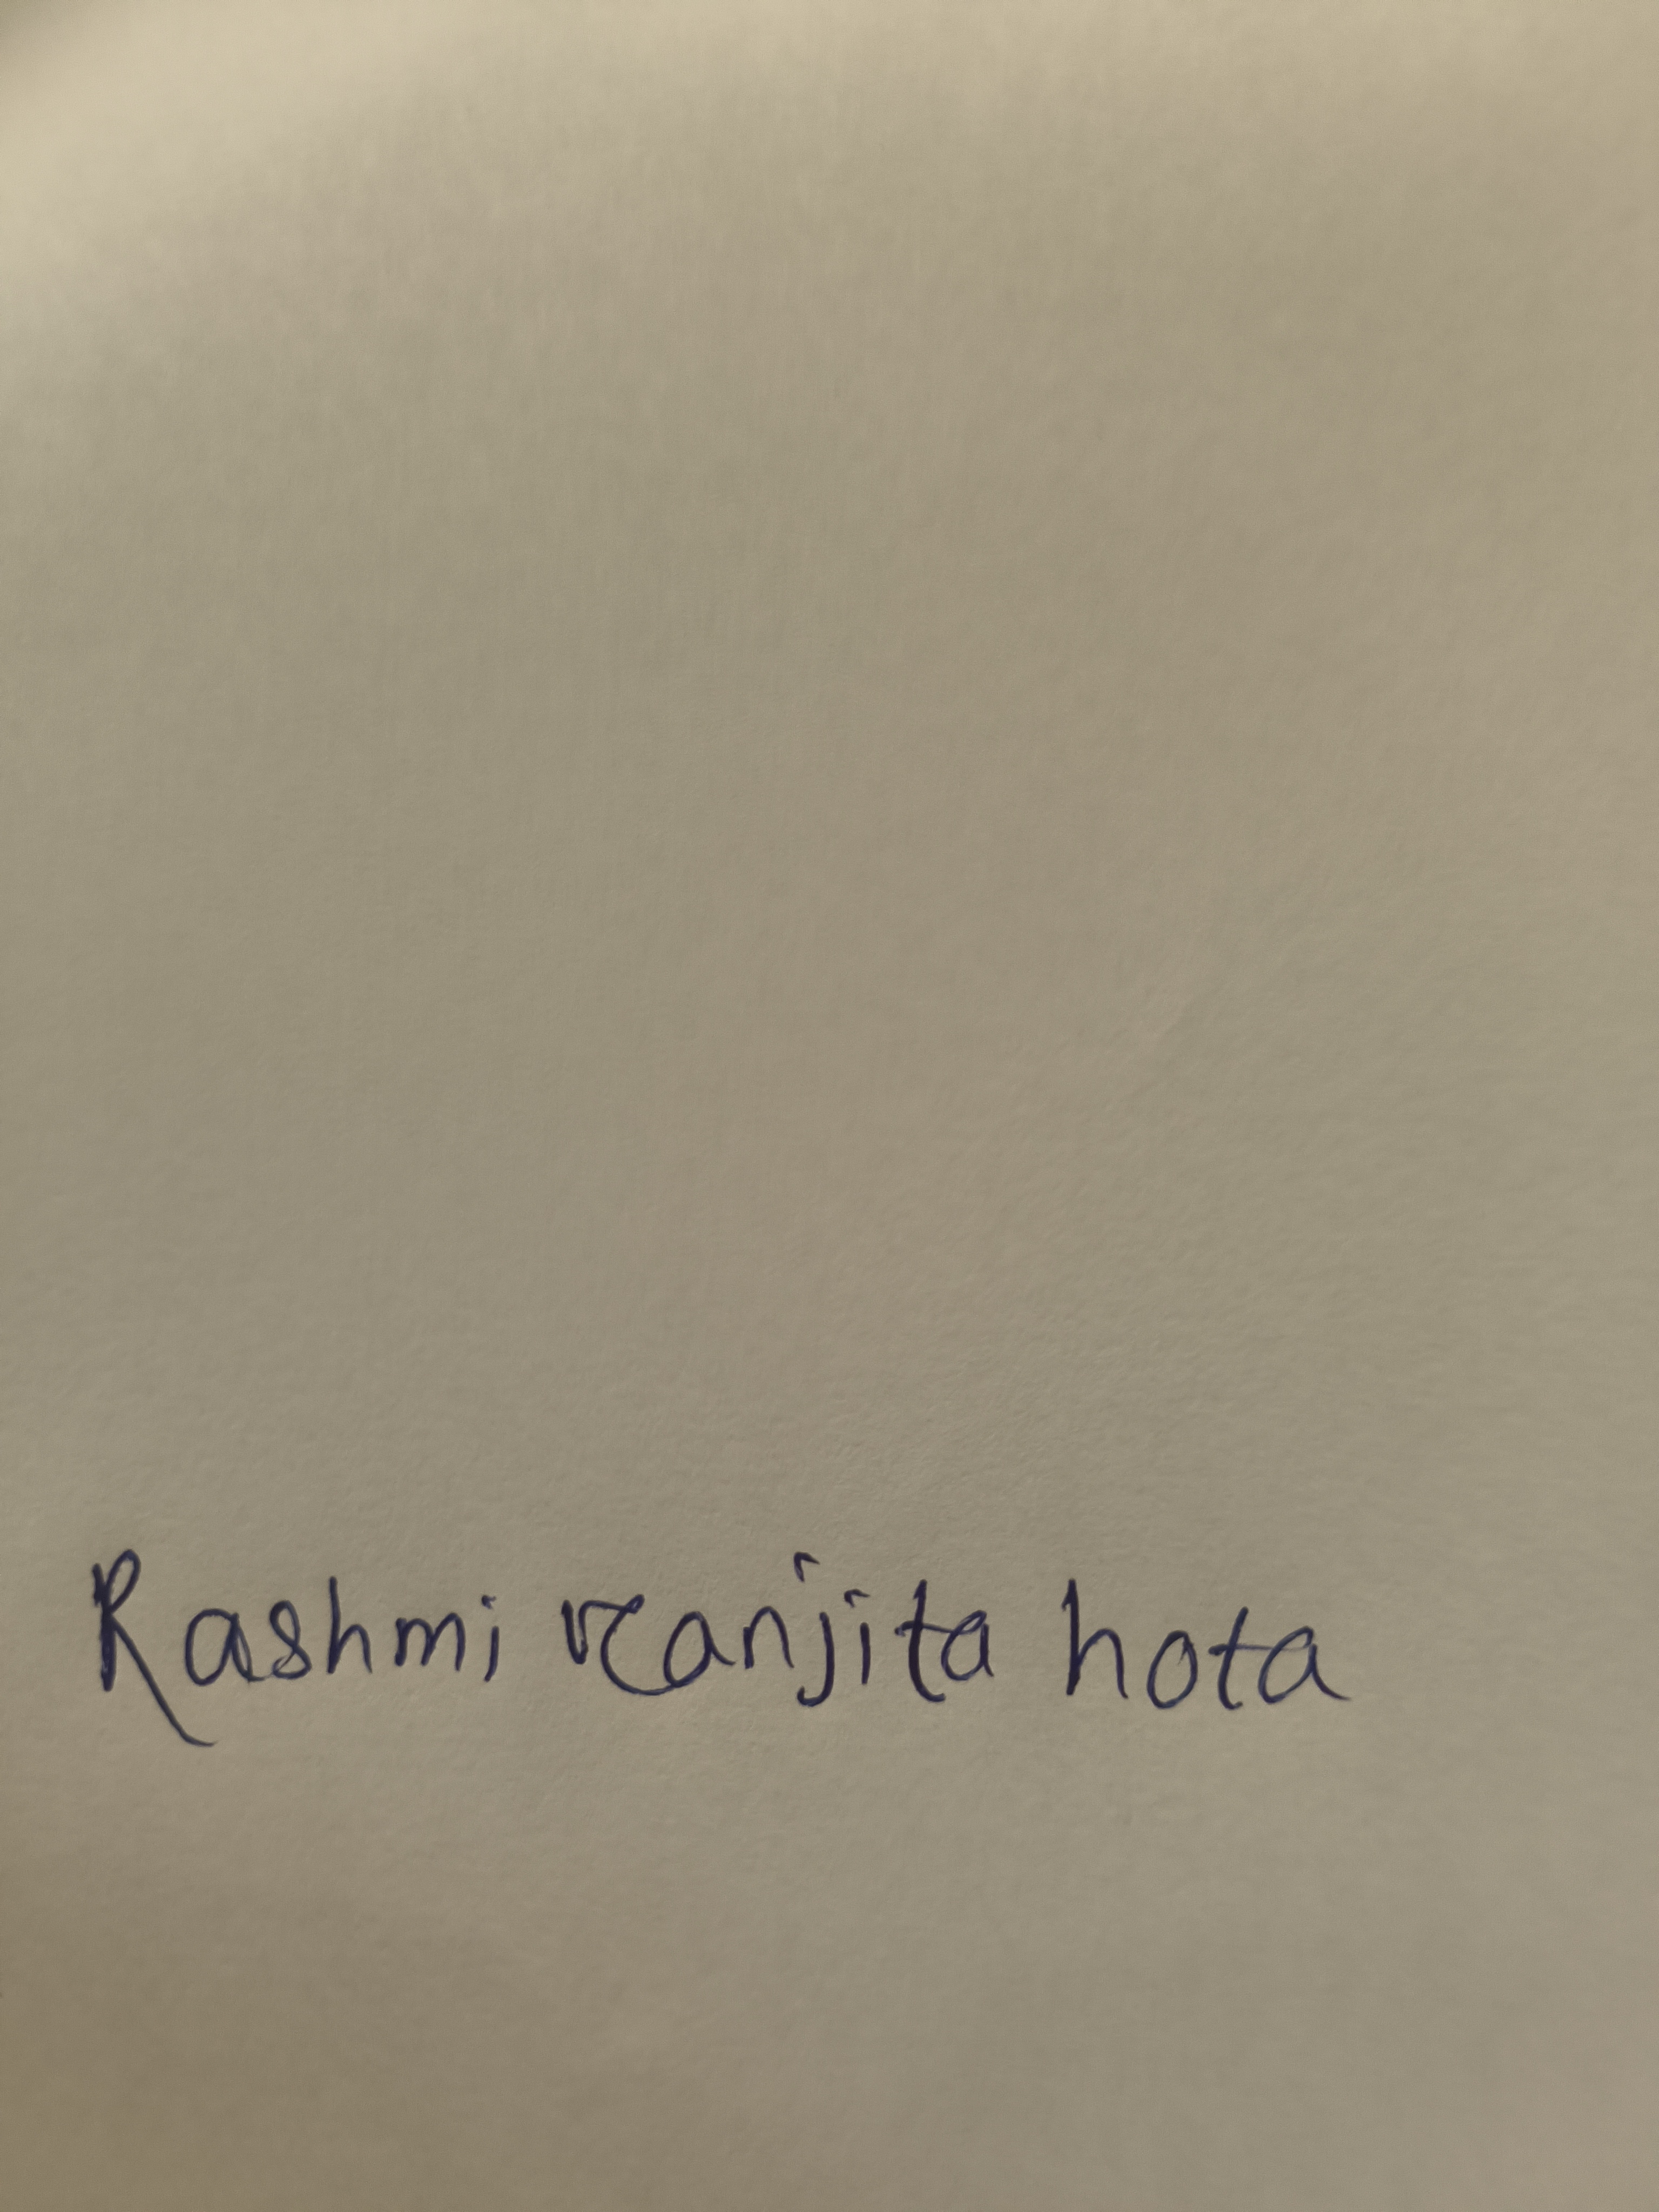 Rashmi ranjita hota